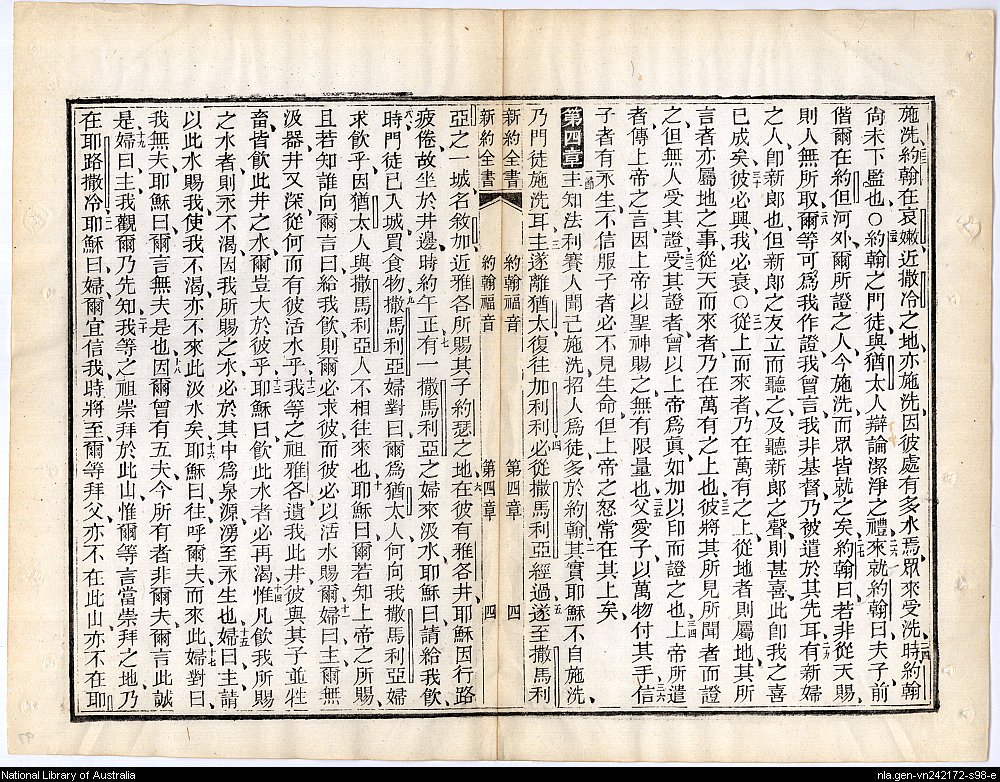 施洗約翰在哀嫩近撒冷之地亦施洗因彼處有多水焉眾來受洗時約翰
尚未下監也○約翰之門徒與猶太人辯論潔淨之禮來就約翰曰夫子前
偕爾在約但河外爾所證之人今施洗而眾皆就之矣約翰曰若非從天賜
則人無所取爾等可為我作證我曾言我非基督乃被遣於其先耳有新婦
之人卽新郎也但新郎之友立而聽之及聽新郎之聲則甚喜此卽我之喜
已成矣彼必興我必衰○從上而來者乃在萬有之上從地者則屬地其所
言者亦屬地之事從天而來者乃在萬有之上也彼將其所見所聞者而證
之但無人受其證受其證者曾以上帝為眞如加以印而證之也上帝所遣
者傳上帝之言因上帝以聖神賜之無有限量也父愛子以萬物付其手信
子者有永生不信服子者必不見生命但上帝之怒常在其上矣
第四章 主知法利賽人聞己施洗招人為徒多於約翰其實耶穌不自施洗
乃門徒施洗耳主遂離猶太復往加利利必從撒馬利亞經過遂至撒馬利
新約全書 約翰福音 第四章 四
新約全書 約翰福音 第四章 四
亞之一城名敘加近雅各所賜其子約瑟之地在彼有雅各井耶穌因行路
疲倦故坐於井邊時約午正有一撒馬利亞之婦來汲水耶穌曰請給我飲
時門徒已入城買食物撒馬利亞婦對曰爾為猶太人何向我撒馬利亞婦
求飲乎因猶太人與撒馬利亞人不相往來也耶穌曰爾若知上帝之所賜
且若知誰向爾言曰給我飲則爾必求彼而彼必以活水賜爾婦曰主爾無
汲器井又深從何而有彼活水乎我等之祖雅各遺我此井彼與其子並牲
畜皆飲此井之水爾豈大於彼乎耶穌曰飲此水者必再渴惟凡飲我所賜
之水者則永不渴因我所賜之水必於其中為泉源湧至永生也婦曰主請
以此水賜我使我不渴亦不來此汲水矣耶穌曰往呼爾夫而來此婦對曰
我無夫耶穌曰爾言無夫是也因爾曾有五夫今所有者非爾夫爾言此誠
是婦曰主我觀爾乃先知我等之祖崇拜於此山惟爾等言當崇拜之地乃
在耶路撒冷耶穌曰婦爾宜信我時將至爾等拜父亦不在此山亦不在耶
National Library of Australia
nla.gen-vn242172-s98-e